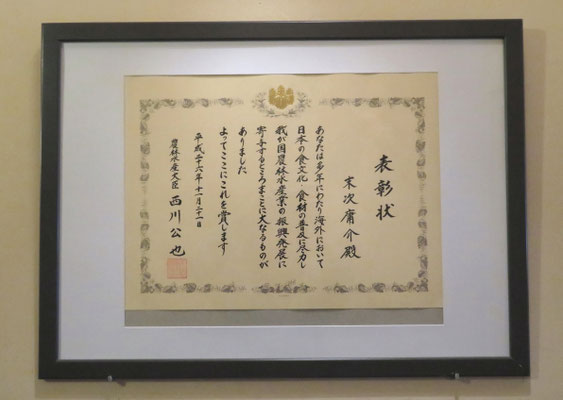 表彰状
末次庸介殿
あなたは多年にわたり海外において
日本の食文化・食材の普及に尽力し
我が国農林水産業の振興発展に
寄与するところまことに大なるものが
ありました
よってここにこれを賞します
平成二十六年十一月二十一日
農林水産大臣 西川公也